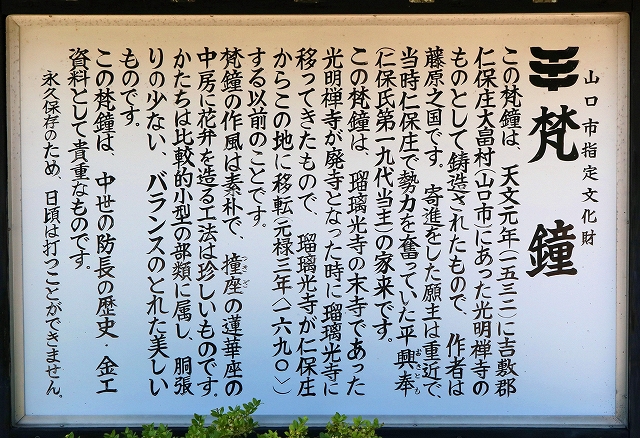 山口市指定文化財
梵鐘
この梵鐘は、天文元年(一五三二)に吉敷郡
仁保庄大畠村(山口市)にあった光明禅寺の
ものとして鋳造されたもので、作者は
藤原之国です。寄進をした願主は重近で、
当時仁保庄で勢力を奮っていた平興奉
おきとも
(仁保氏第一九代当主)の家来です。
この梵鐘は、瑠璃光寺の末寺であった
光明禅寺が廃寺となった時に瑠璃光寺に
移ってきたもので、瑠璃光寺が仁保庄
からこの地に移転(元禄三年〈一六九〇〉)
する以前のことです。
梵鐘の作風は素朴で、撞座の蓮華座の
つきざ
中房に花弁を造る工法は珍しいものです。
かたちは比較的小型の部類に属し、胴張
りの少ない、バランスのとれた美しい
ものです。
この梵鐘は、中世の防長の歴史・金工
資料として貴重なものです。
永久保存のため、日頃は打つことができません。